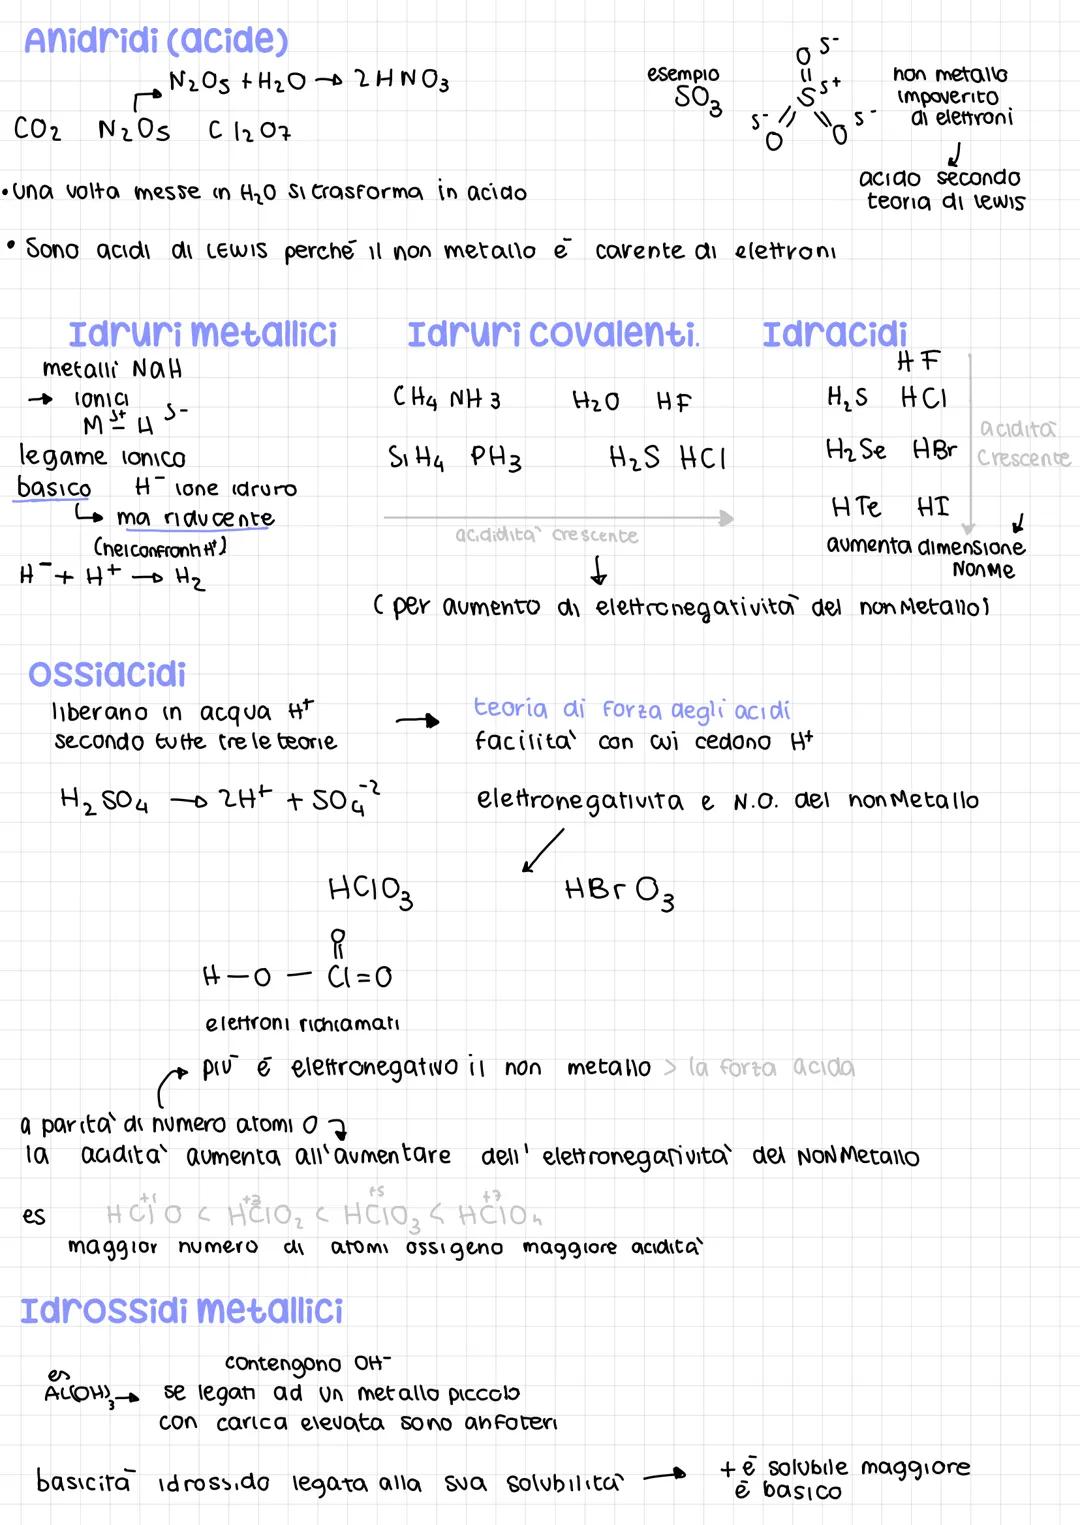 Anidridi (acide)
N₂O₅ + H₂O → 2HNO₃
CO₂ N₂O₅ Cl₂O₇
esempio
SO₃
O δ-
S δ+
δ- O O δ-
non metallo
impoverito
di elettroni
↓
acido secondo
teoria di lewis
• una volta messe in H₂O si trasforma in acido
• Sono acidi di LEWIS perché il non metallo è carente di elettroni
Idruri metallici
metalli NaH
→ ionici
M δ+ – H δ-
legame ionico
basico H⁻ ione idruro
↳ ma riducente
(nei confronti H⁺)
H⁻ + H⁺ → H₂
Idruri covalenti.
CH₄ NH₃ H₂O HF
SiH₄ PH₃ H₂S HCl
acididità crescente
↓
(per aumento di elettronegatività del non Metallo)
Idracidi
HF
H₂S HCl
H₂Se HBr
HTe HI
acidità
crescente
aumenta dimensione
NonMe
Ossiacidi
liberano in acqua H⁺
secondo tutte tre le teorie
H₂SO₄ → 2H⁺ + SO₄⁻²
→ teoria di forza degli acidi
facilità con cui cedono H⁺
elettronegatività e N.O. del nonMetallo
HClO₃ HBrO₃
O
H–O–Cl=O
elettroni richiamati
più è elettronegativo il non metallo > la forza acida
a parità di numero atomi O
la acidità aumenta all'aumentare dell'elettronegatività del NonMetallo
+1 +3 +5 +7
es HClO < HClO₂ < HClO₃ < HClO₄
maggior numero di atomi ossigeno maggiore acidità
Idrossidi metallici
contengono OH⁻
es
Al(OH)₃ → se legati ad un metallo piccolo
con carica elevata sono anfoteri
basicità idrossido legata alla sua solubilità → + è solubile maggiore
è basico